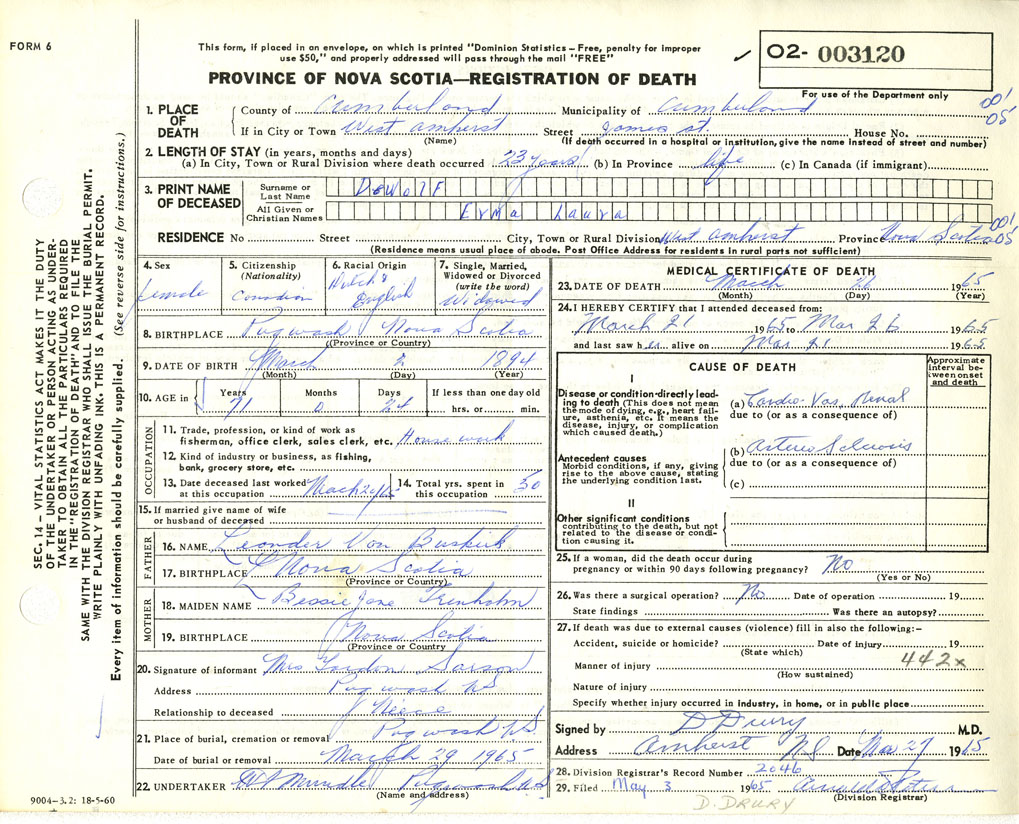 FORM 6
This form, if placed in an envelope, on which is printed "Dominion Statistics – Free, penalty for improper
use $50," and properly addressed will pass through the mail "FREE"
PROVINCE OF NOVA SCOTIA—REGISTRATION OF DEATH
✓ 02- 003120
For use of the Department only
001
05
1. PLACE OF DEATH
County of Cumberland Municipality of Cumberland
If in City or Town West Amherst Street James St. House No.
(Name) (If death occurred in a hospital or institution, give the name instead of street and number)
2. LENGTH OF STAY (in years, months and days)
(a) In City, Town or Rural Division where death occurred 23 years (b) In Province life (c) In Canada (if immigrant)
3. PRINT NAME OF DECEASED
Surname or Last Name DeWolf
All Given or Christian Names Erma Laura
001
05
RESIDENCE No Street City, Town or Rural Division West Amherst Province Nova Scotia
(Residence means usual place of abode. Post Office Address for residents in rural parts not sufficient)
4. Sex female
5. Citizenship (Nationality) Canadian
6. Racial Origin Dutch & English
7. Single, Married, Widowed or Divorced (write the word) Widowed
8. BIRTHPLACE Pugwash Nova Scotia
(Province or Country)
9. DATE OF BIRTH March 2 1894
(Month) (Day) (Year)
10. AGE in Years 71 Months 0 Days 24 If less than one day old hrs. or min.
OCCUPATION
11. Trade, profession, or kind of work as
fisherman, office clerk, sales clerk, etc. House work
12. Kind of industry or business, as fishing,
bank, grocery store, etc.
13. Date deceased last worked at this occupation
14. Total yrs. spent in this occupation 50
15. If married give name of wife
or husband of deceased
FATHER
16. NAME Leander Van Buskirk
17. BIRTHPLACE Nova Scotia
(Province or Country)
MOTHER
18. MAIDEN NAME Bessie Jane Trenholm
19. BIRTHPLACE Nova Scotia
(Province or Country)
20. Signature of informant Mrs
Address Pugwash NS
Relationship to deceased Niece
21. Place of burial, cremation or removal Pugwash N.S.
Date of burial or removal March 29 1965
22. UNDERTAKER Mundle Pugwash N.S
(Name and address)
9004–3.2: 18-5-60
MEDICAL CERTIFICATE OF DEATH
23. DATE OF DEATH March 26 1965
(Month) (Day) (Year)
24. I HEREBY CERTIFY that I attended deceased from:
March 21 1965 to Mar 26 1965
and last saw her alive on Mar 21 1965
CAUSE OF DEATH
Approximate interval between onset and death
I
Disease or condition directly leading to death (This does not mean
the mode of dying, e.g., heart failure, asthenia, etc. It means the
disease, injury, or complication
which caused death.)
(a) Cardio-Vas. Renal
due to (or as a consequence of)
Antecedent causes
Morbid conditions, if any, giving
rise to the above cause, stating
the underlying condition last.
(b) Arterio Sclerosis
due to (or as a consequence of)
(c)
II
Other significant conditions
contributing to the death, but not
related to the disease or condition causing it.
25. If a woman, did the death occur during
pregnancy or within 90 days following pregnancy? No
(Yes or No)
26. Was there a surgical operation? No Date of operation 19
State findings Was there an autopsy?
27. If death was due to external causes (violence) fill in also the following:–
Accident, suicide or homicide? Date of injury 19
(State which)
442x
Manner of injury
(How sustained)
Nature of injury
Specify whether injury occurred in industry, in home, or in public place
Signed by D Drury M.D.
Address Amherst NS Date Mar 29 1965
28. Division Registrar's Record Number 2046
29. Filed May 3 1965
(Division Registrar)
D. DRURY
SEC. 14 – VITAL STATISTICS ACT MAKES IT THE DUTY
OF THE UNDERTAKER OR PERSON ACTING AS UNDER-
TAKER TO OBTAIN ALL THE PARTICULARS REQUIRED
IN THE "REGISTRATION OF DEATH" AND TO FILE THE
SAME WITH THE DIVISION REGISTRAR WHO SHALL ISSUE THE BURIAL PERMIT.
WRITE PLAINLY WITH UNFADING INK. THIS IS A PERMANENT RECORD.
Every item of information should be carefully supplied. (See reverse side for instructions.)